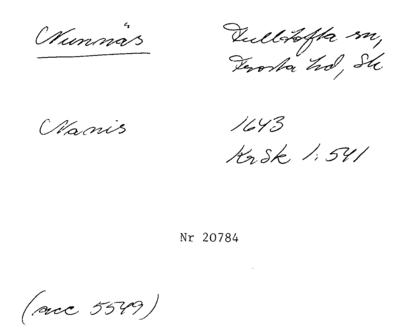 Nunnäs Fulltofta sn,
Frosta hd, Sk
Nanis 1643
KrSk 1:541
Nr 20784
(acc 5549)